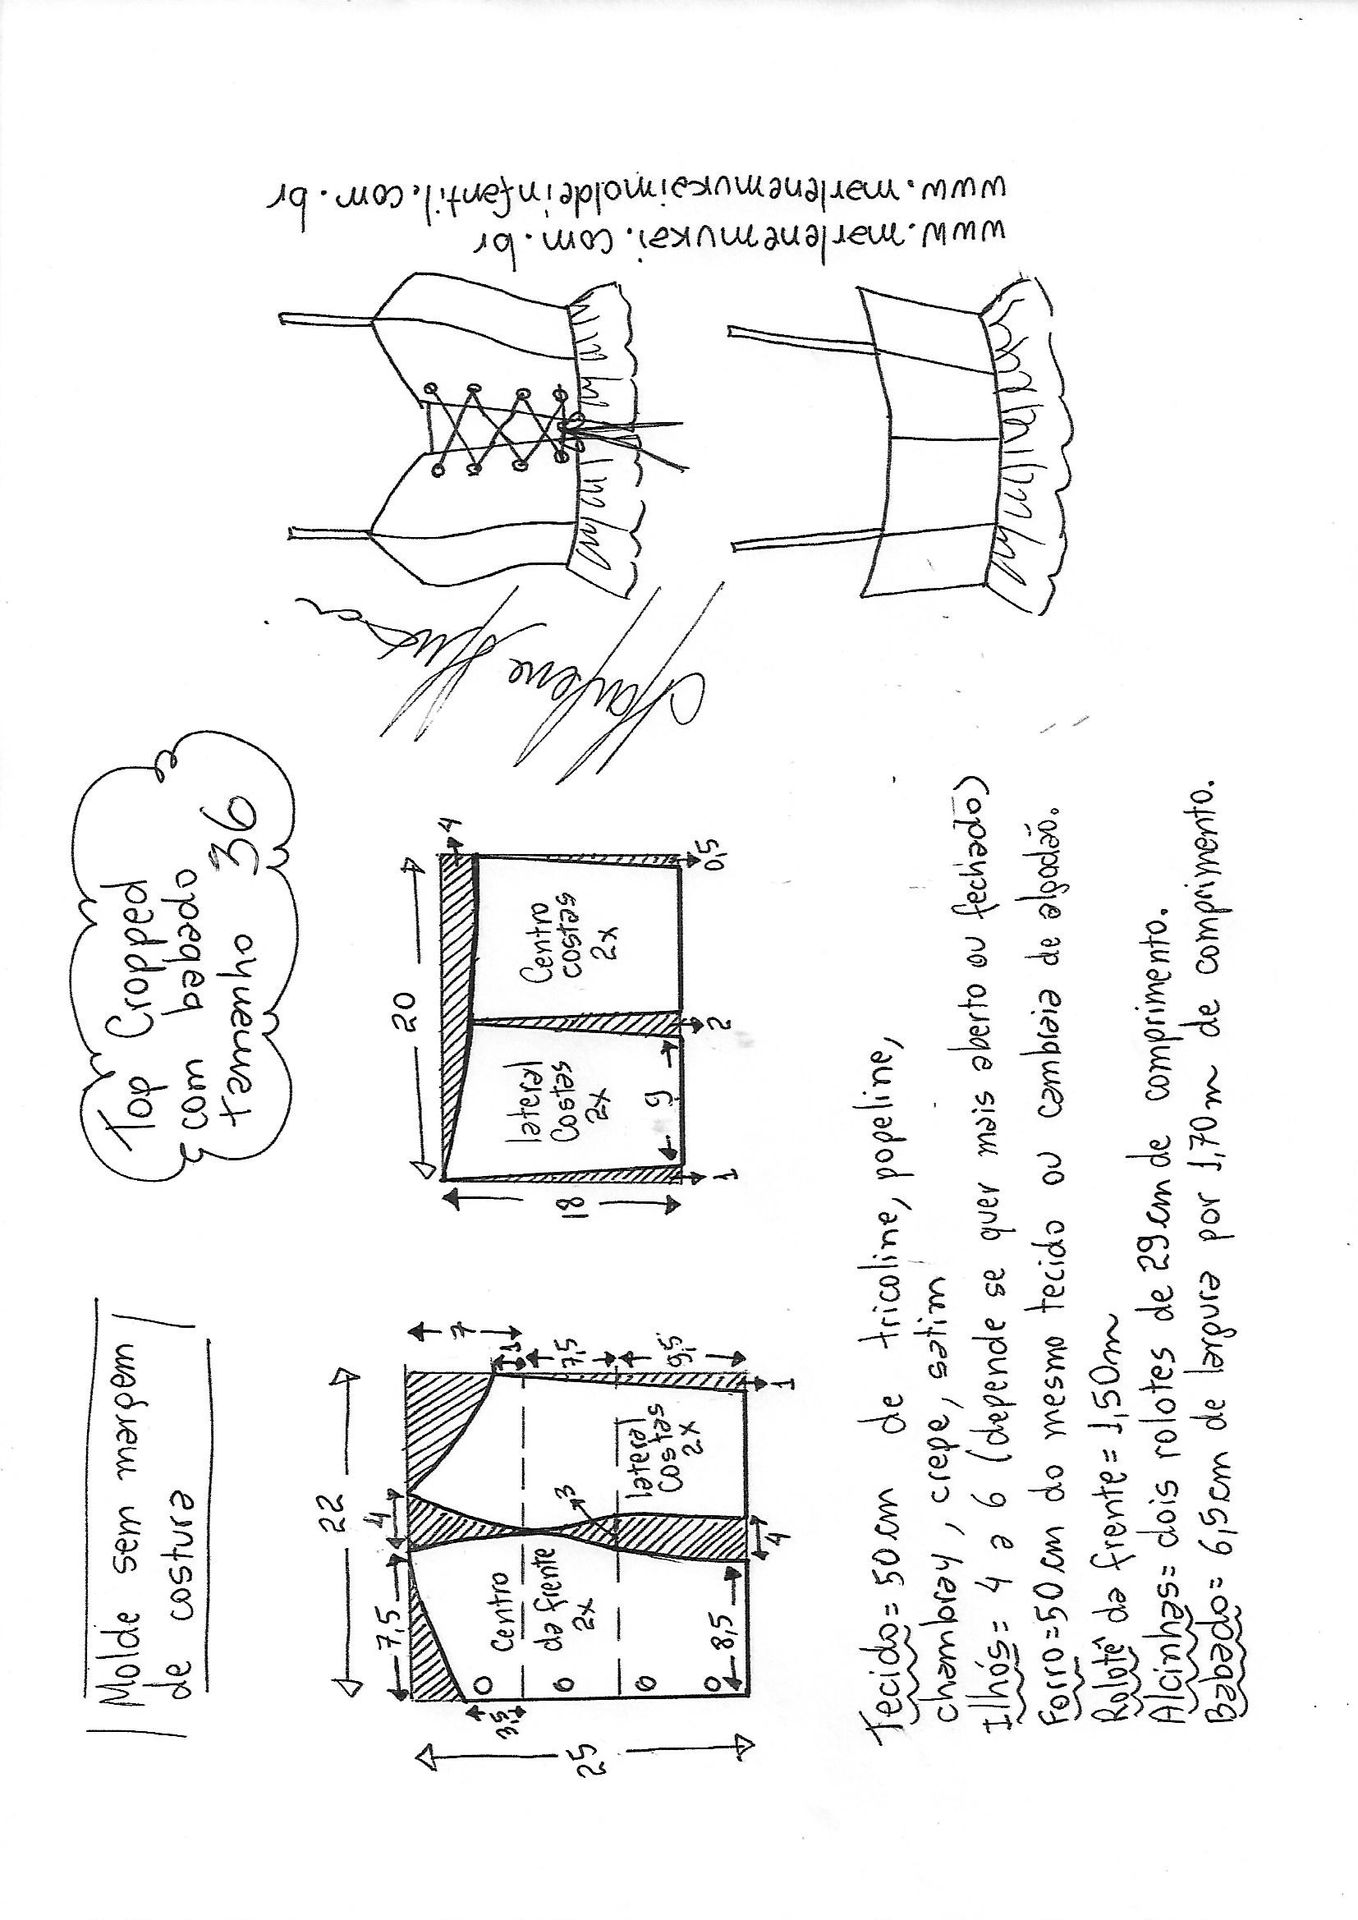 Molde sem margem
de costura
Top Cropped
com babado
tamanho 36
22
7,5
4
7
1
7,5
9,5
1
3,5
25
Centro
da frente
2x
3
lateral
costas
2x
8,5
4
20
4
18
lateral
Costas
2x
Centro
costas
2x
9
1
2
0,5
Marlene Mukai
www.marlenemukai.com.br
www.marlenemukaimoldeinfantil.com.br
Tecido = 50cm de tricoline, popeline,
chambray, crepe, satim
Ilhós = 4 a 6 (depende se quer mais aberto ou fechado)
Forro = 50 cm do mesmo tecido ou cambraia de algodão.
Rolotê da frente = 1,50m
Alcinhas = dois rolotes de 29cm de comprimento.
Babado = 6,5cm de largura por 1,70m de comprimento.